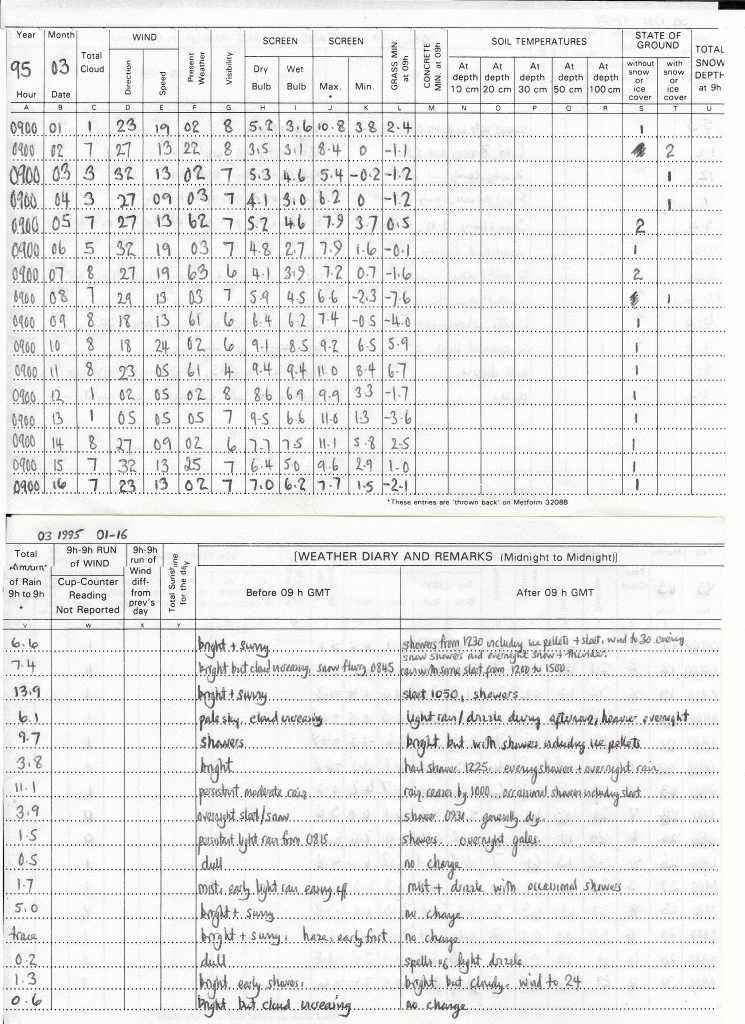 Year Month Total Cloud WIND Present Weather Visibility SCREEN SCREEN GRASS MIN. at 09h CONCRETE MIN. at 09h SOIL TEMPERATURES STATE OF GROUND TOTAL SNOW DEPTH at 9h
95 03 Direction Speed Dry Bulb Wet Bulb Max. * Min. At depth 10 cm At depth 20 cm At depth 30 cm At depth 50 cm At depth 100 cm without snow or ice cover with snow or ice cover
Hour Date
A B C D E F G H I J K L M N O P Q R S T U
0900 01 1 23 19 02 8 5.2 3.6 10.8 3.8 2.4 1
0900 02 7 27 13 22 8 3.5 3.1 8.4 0 -1.1 2
0900 03 3 32 13 02 7 5.3 4.6 5.4 -0.2 -1.2 1
0900 04 3 27 09 03 7 4.1 3.0 6.2 0 -1.2 1
0900 05 7 27 13 62 7 5.2 4.6 7.9 3.7 0.5 2
0900 06 5 32 19 03 7 4.8 2.7 7.9 1.6 -0.1 1
0900 07 8 27 19 63 6 4.1 3.9 7.2 0.7 -1.6 2
0900 08 7 29 13 03 7 5.9 4.5 6.6 -2.3 -7.6 1
0900 09 8 18 13 61 6 6.4 6.2 7.4 -0.5 -4.0 1
0900 10 8 18 24 02 6 9.1 8.5 9.2 6.5 5.9 1
0900 11 8 23 05 61 4 9.4 9.4 11.0 8.4 6.7 1
0900 12 1 02 05 02 8 8.6 6.9 9.9 3.3 -1.7 1
0900 13 1 05 05 05 7 9.5 6.6 11.0 1.3 -3.6 1
0900 14 8 27 09 02 6 7.7 7.5 11.1 5.8 2.5 1
0900 15 7 32 13 25 7 6.4 5.0 9.6 2.9 1.0 1
0900 16 7 23 13 02 7 7.0 6.2 7.7 1.5 -2.1 1
*These entries are 'thrown back' on Metform 3208B
03 1995 01-16
Total Amount of Rain 9h to 9h * 9h-9h RUN of WIND Cup-Counter Reading Not Reported 9h-9h run of Wind diff- from prev's day Total Sunshine for the day [WEATHER DIARY AND REMARKS (Midnight to Midnight)]
Before 09 h GMT After 09 h GMT
V W X Y
6.6 bright + sunny showers from 1230 including ice pellets + sleet, wind to 30 evening
snow showers and overnight snow + thunder.
7.4 bright but cloud increasing, snow flurry 0845 rain with some sleet from 1200 to 1500.
13.9 bright + sunny sleet 1050, showers
6.1 pale sky, cloud increasing light rain/drizzle during afternoon, heavier overnight
9.7 showers bright but with showers including ice pellets
3.8 bright hail shower 1225. evening showers + overnight rain
11.1 persistent moderate rain rain ceases by 1000, occasional showers including sleet
3.9 overnight sleet/snow shower 0931. generally dry.
1.5 persistent light rain from 0815 showers. overnight gales.
0.5 dull no change
1.7 mist, early light rain easing off mist + drizzle with occasional showers
5.0 bright + sunny no change
trace bright + sunny, haze, early frost no change
0.2 dull spells of light drizzle
1.3 bright, early showers. bright but cloudy. wind to 24
0.6 bright but cloud increasing no change